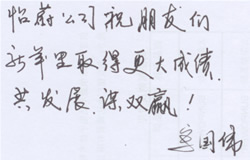 怡蔚公司祝朋友们
新年里取得更大成绩，
共发展，谋双赢！
国伟